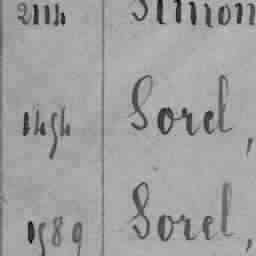 2114 Simon
1454 Sorel,
1589 Sorel,